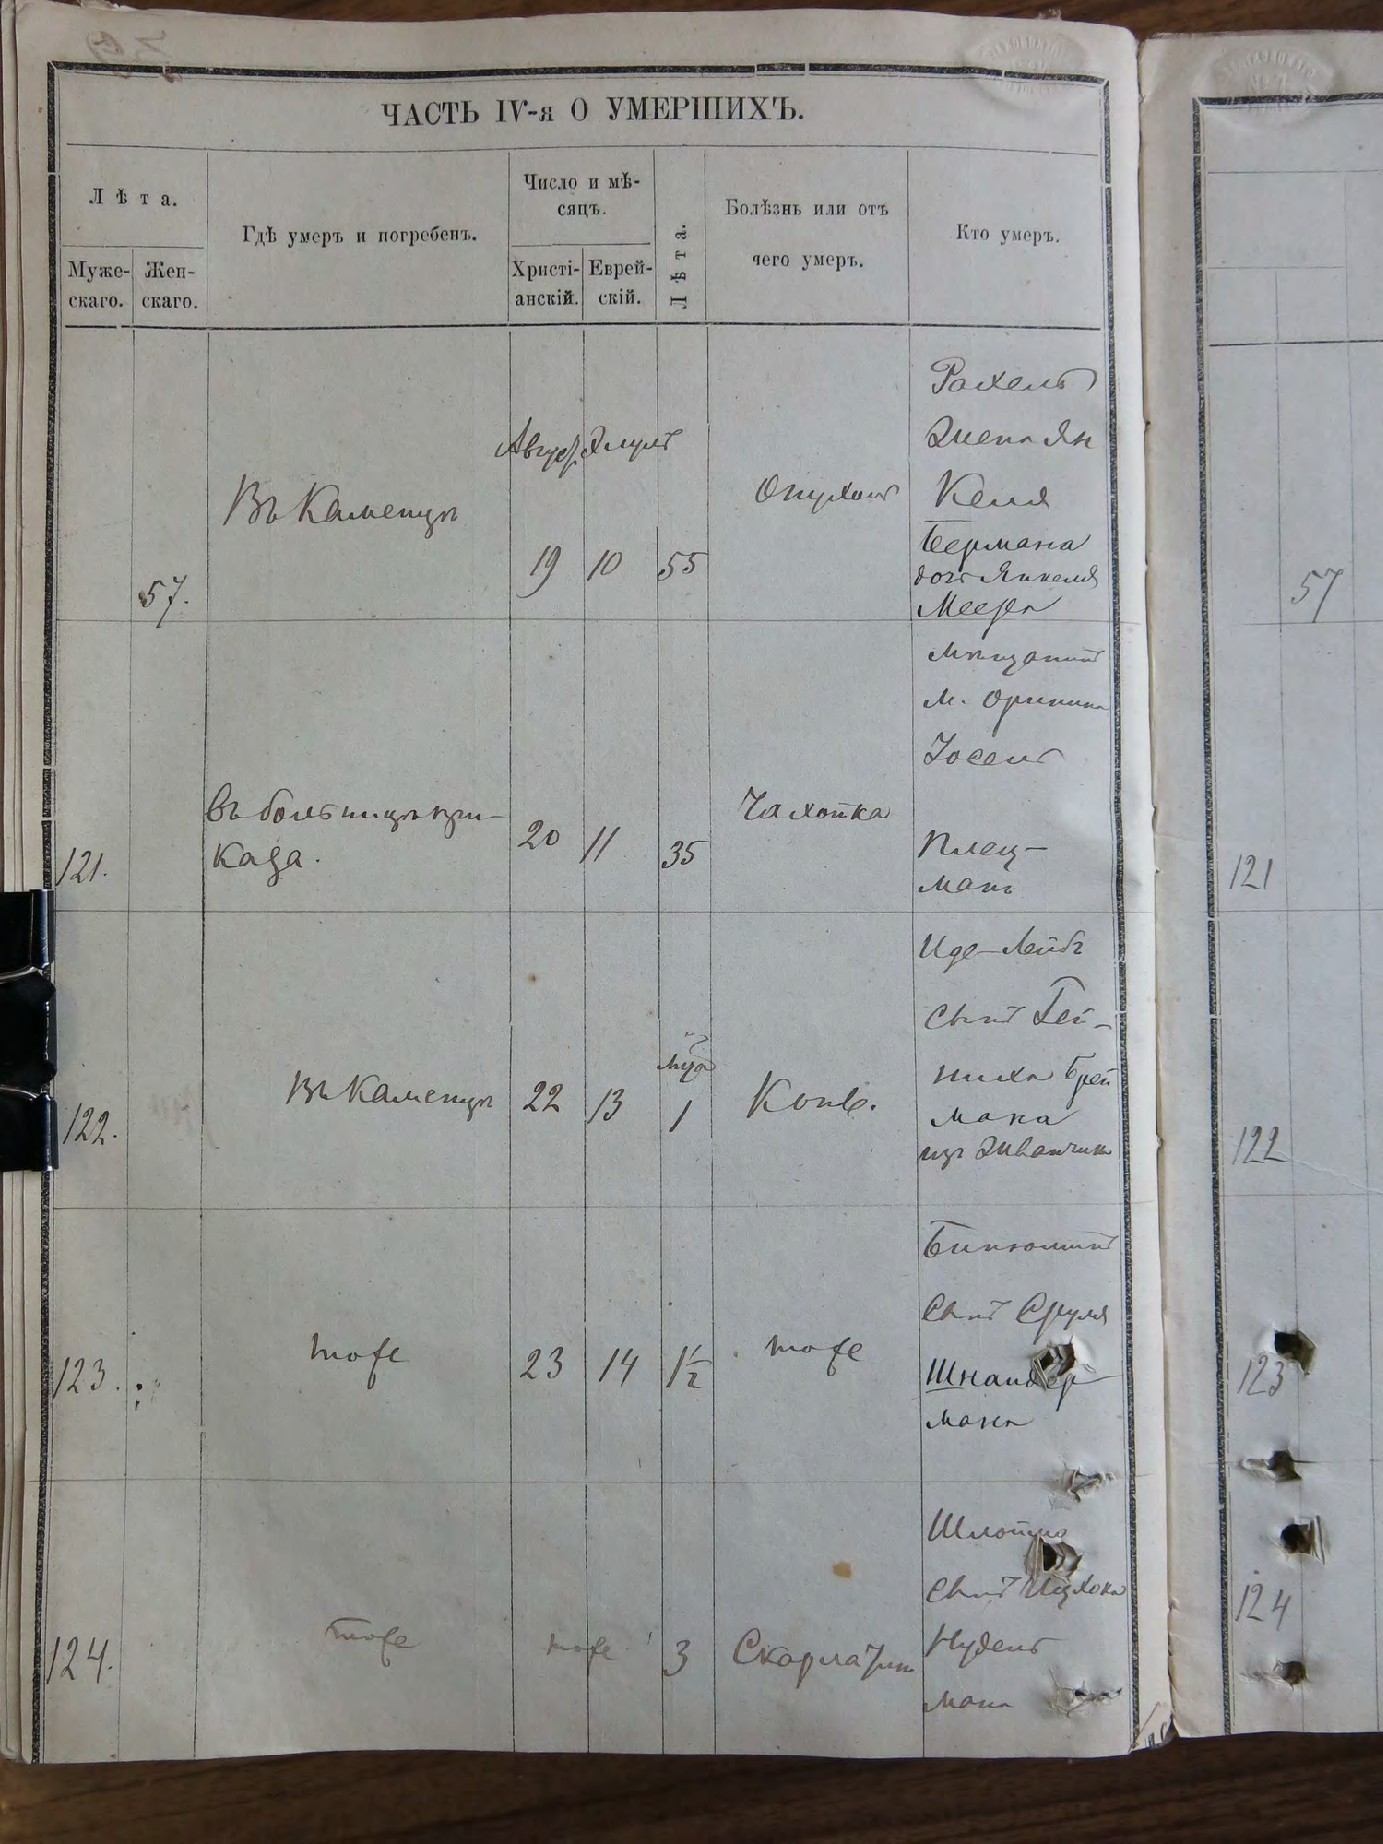 ЧАСТЬ IV-я О УМЕРШИХЪ.
Лѣта.
Муже-
скаго.
Жен-
скаго.
Гдѣ умеръ и погребенъ.
Число и мѣ-
сяцъ.
Христі-
анскій.
Еврей-
скій.
Лѣта.
Болѣзнь или отъ
чего умеръ.
Кто умеръ.
57.
Въ Каменцѣ
Август Элулъ
19 10 55
Опухоль
Рахель
Жена Ян
Келя
Бермана
дочь Янкеля
Меера
57
121.
Въ больницѣ при-
каза.
20 11 35
Чахотка
Мѣщанинъ
м. Оринина
Іосель
Плец-
манъ
121
122.
Въ Каменцѣ
22 13
1
Конв.
Иде-Лейбъ
Сынъ Гей-
ниха Брей
мана
изъ Жванчика
122
123.
тоже
23 14 1½
тоже
Биніоминъ
Сынъ Сруля
Шнайдер
мана
123
124.
тоже
тоже
3
Скарлатин
Шлойма
Сынъ Ицхока
Нудель
мана
124